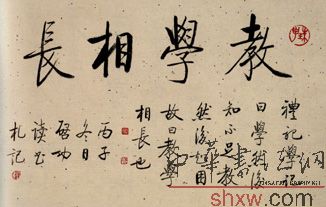 教學相長
禮記學記
曰學然後
知不足教
然後知困
故曰教學
相長也
丙子
冬日
啓功
读书
札記
shxw.com